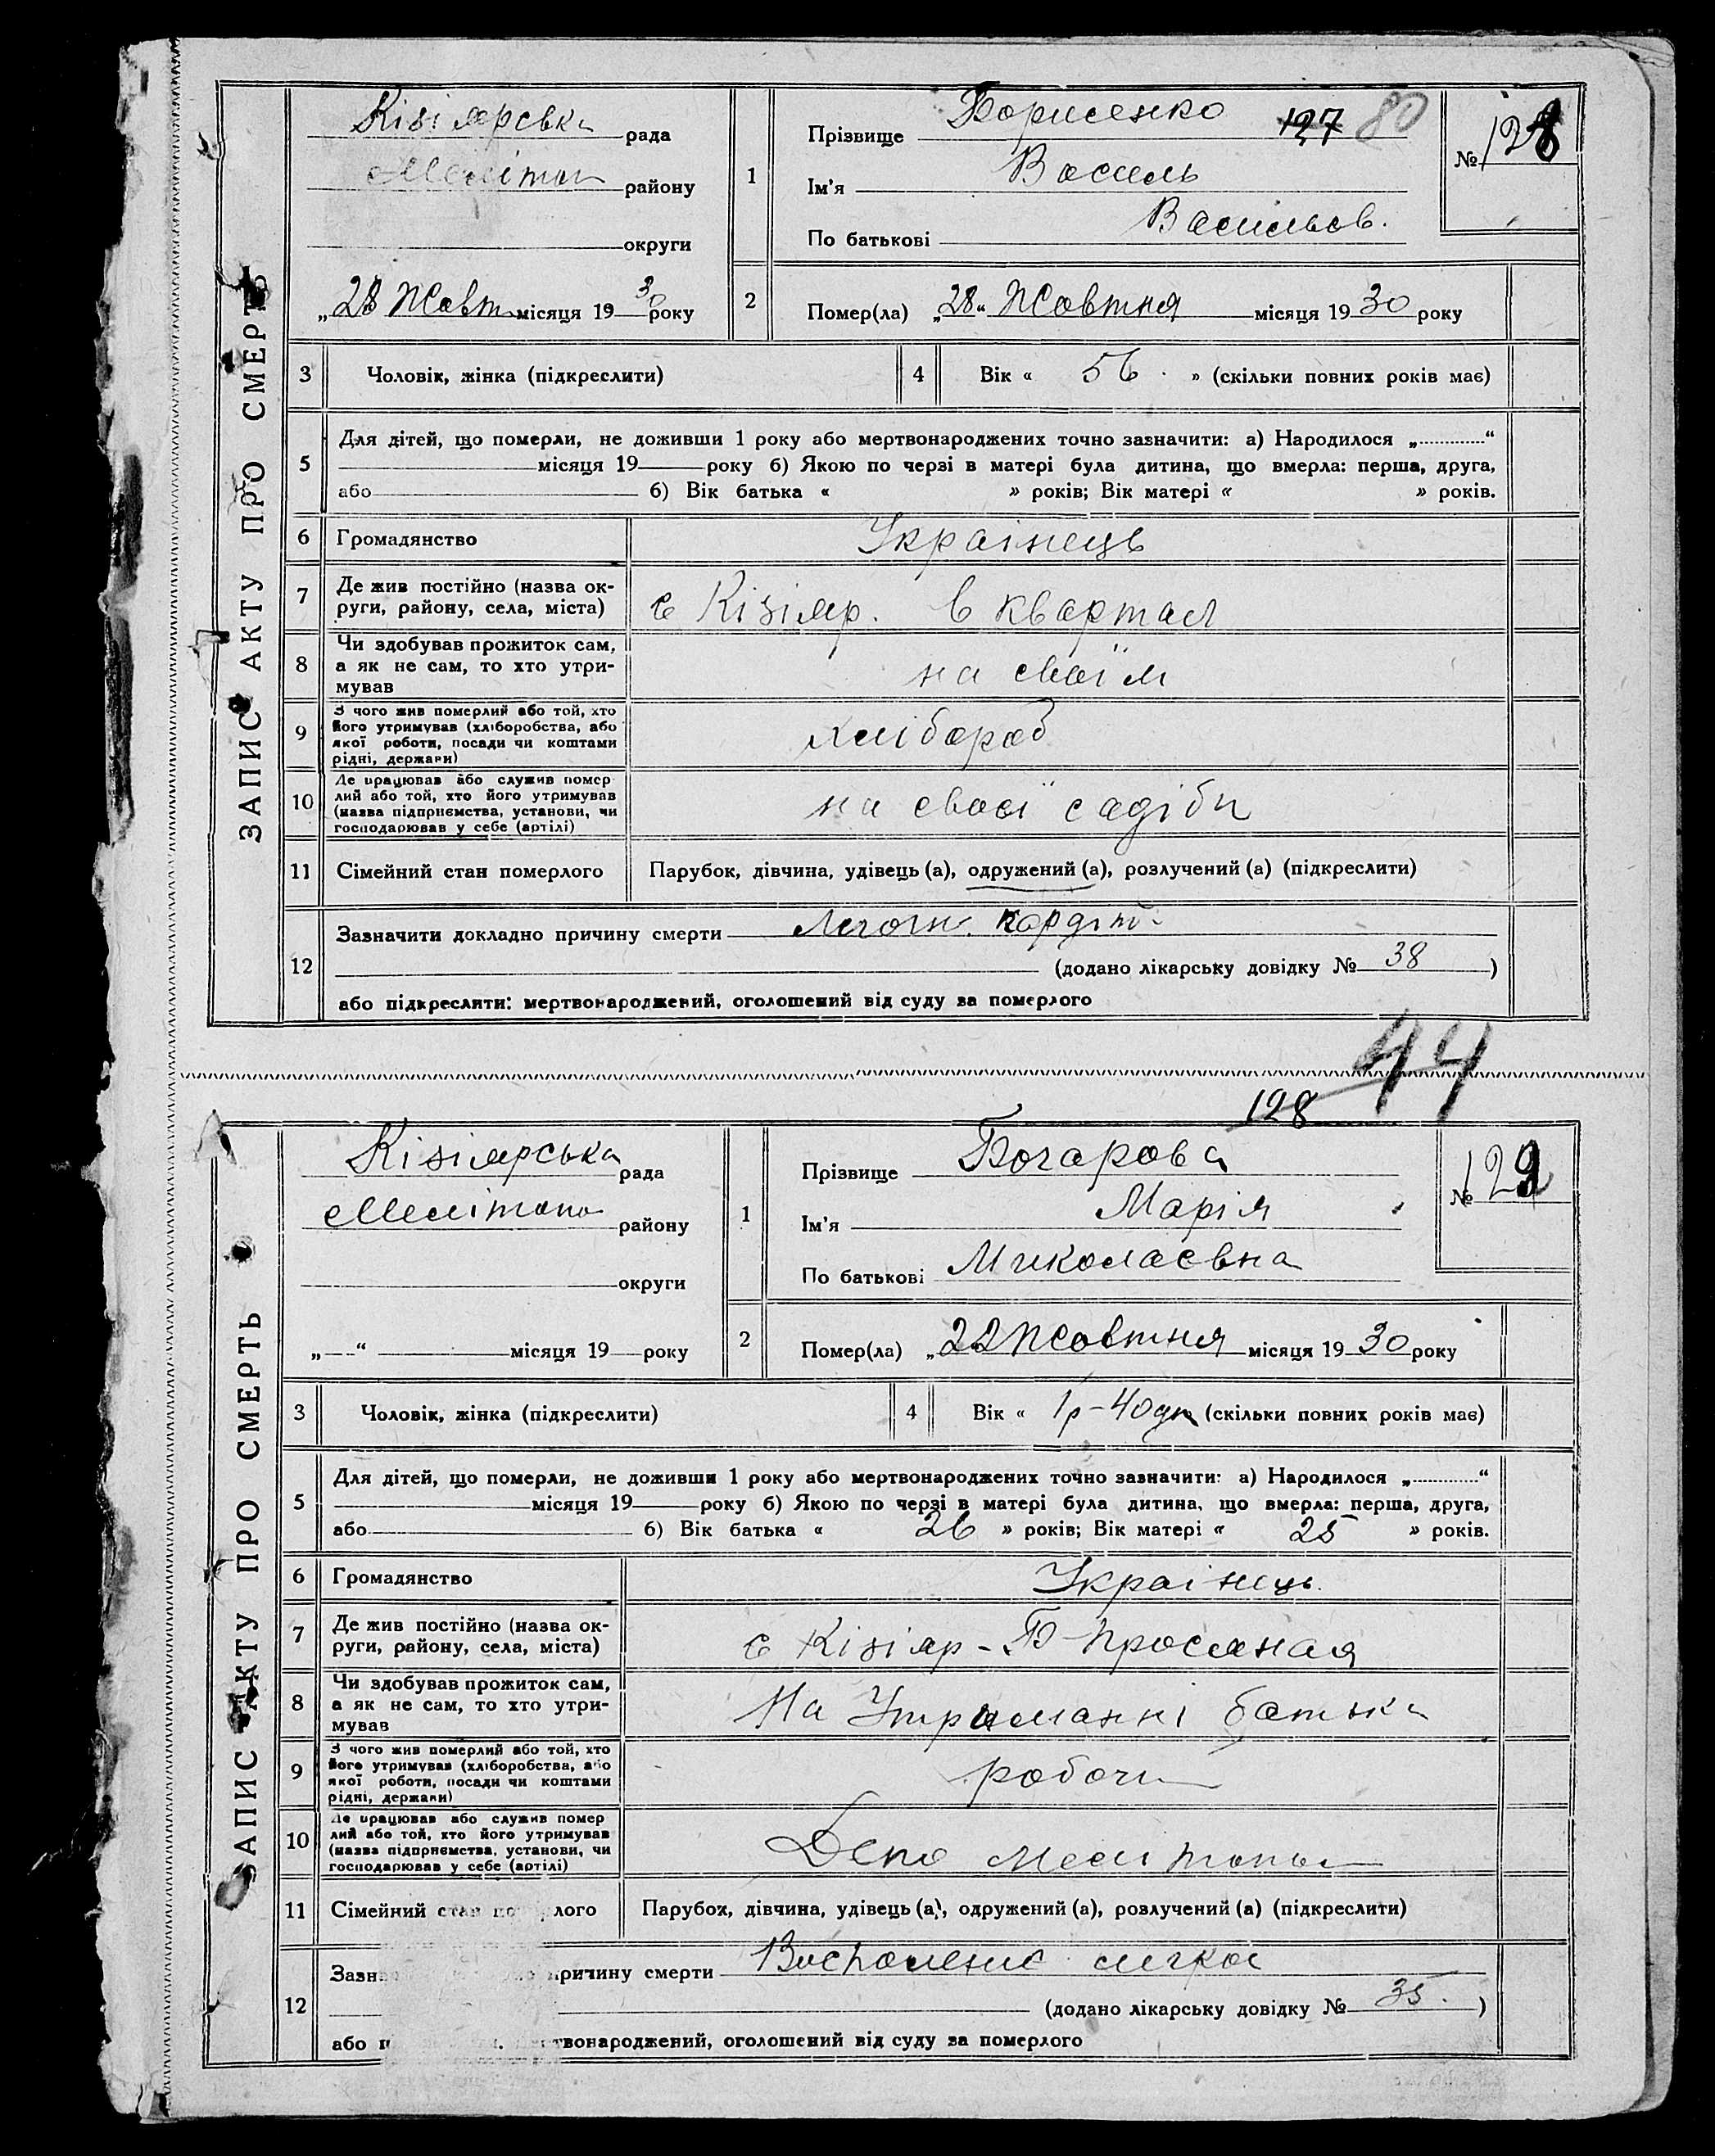 ЗАПИС АКТУ ПРО СМЕРТЬ
Кізіярська рада
Мелітоп району
округи
„28 Жовт місяця 1930 року
1
Прізвище Борисенко 127 80
Ім'я Василь
По батькові Васильов.
№ 128
2
Помер(ла) „28“ Жовтня місяця 1930 року
3 Чоловік, жінка (підкреслити)
4 Вік « 56 . » (скільки повних років має)
5
Для дітей, що померли, не доживши 1 року або мертвонароджених точно зазначити: а) Народилося „ “
місяця 19 року б) Якою по черзі в матері була дитина, що вмерла: перша, друга,
або б) Вік батька « » років; Вік матері « » років.
6 Громадянство Українець
7
Де жив постійно (назва ок-
руги, району, села, міста)
с Кізіяр. 6 квартал
8
Чи здобував прожиток сам,
а як не сам, то хто утри-
мував
на своїм
9
З чого жив померлий або той, хто
його утримував (хліборобства, або
якої роботи, посади чи коштами
рідні, держави)
хлібороб
10
Де працював або служив помер
лий або той, хто його утримував
(назва підприємства, установи, чи
господарював у себе (артілі)
на своєї садіби
11 Сімейний стан померлого Парубок, дівчина, удівець (а), одружений (а), розлучений (а) (підкреслити)
12
Зазначити докладно причину смерти
(додано лікарську довідку № 38 )
або підкреслити: мертвонароджений, оголошений від суду за померлого
44
128
ЗАПИС АКТУ ПРО СМЕРТЬ
Кізіярська рада
Мелітопо району
округи
„ “ місяця 19 року
1
Прізвище Бочарова
Ім'я Марія
По батькові Миколаєвна
№ 129
2
Помер(ла) „22 Жовтня місяця 1930 року
3 Чоловік, жінка (підкреслити)
4 Вік « 1р-40дн (скільки повних років має)
5
Для дітей, що померли, не доживши 1 року або мертвонароджених точно зазначити: а) Народилося „ “
місяця 19 року б) Якою по черзі в матері була дитина, що вмерла: перша, друга,
або б) Вік батька « 26 » років; Вік матері « 25 » років.
6 Громадянство Українець.
7
Де жив постійно (назва ок-
руги, району, села, міста)
с Кізіяр -
8
Чи здобував прожиток сам,
а як не сам, то хто утри-
мував
На Утриманні батька
9
З чого жив померлий або той, хто
його утримував (хліборобства, або
якої роботи, посади чи коштами
рідні, держави)
робочи
10
Де працював або служив помер
лий або той, хто його утримував
(назва підприємства, установи, чи
господарював у себе (артілі)
Депо
11 Сімейний стан по лого Парубок, дівчина, удівець (а), одружений (а), розлучений (а) (підкреслити)
12
Зазн причину смерти
(додано лікарську довідку № 35. )
або п твонароджений, оголошений від суду за померлого